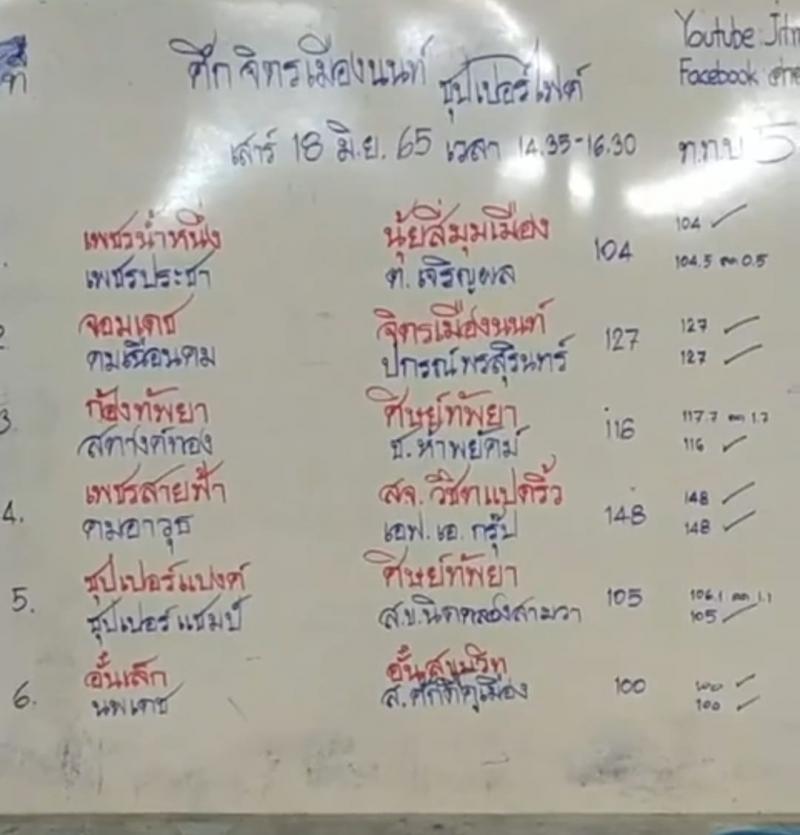 ที่ ศึกจิตรเมืองนนท์ ซุปเปอร์ไฟต์ Youtube: Jitm
Facebook
เสาร์ 18 มิ.ย. 65 เวลา 14.35-16.30 ท.ท.บ 5
เพชรน้ำหนึ่ง นุ้ยสี่มุมเมือง 104 104 ✓
เพชรประชา ต. เจริญผล 104.5 ลด 0.5
2 จอมเดช จิตรเมืองนนท์ 127 127 ✓
คมเฉือนคม ปกรณ์พรสุรินทร์ 127 ✓
3 ก้องทัพยา ศิษย์ทัพยา 116 117.7 ลด 1.7
สตางค์ทอง ช. ห้าพยัคฆ์ 116 ✓
4. เพชรสายฟ้า สจ. วิชิตแปดริ้ว 148 148 ✓
คมอาวุธ เอฟ. เอ. กรุ๊ป 148 ✓
5. ซุปเปอร์แบงค์ ศิษย์ทัพยา 105 106.1 ลด 1.1
ซุปเปอร์แชมป์ ส.ข.นิดคลองสามวา 105 ✓
6. อั๋นเล็ก อั๋นสุขุมวิท 100 100 ✓
นพเดช ส. 100 ✓